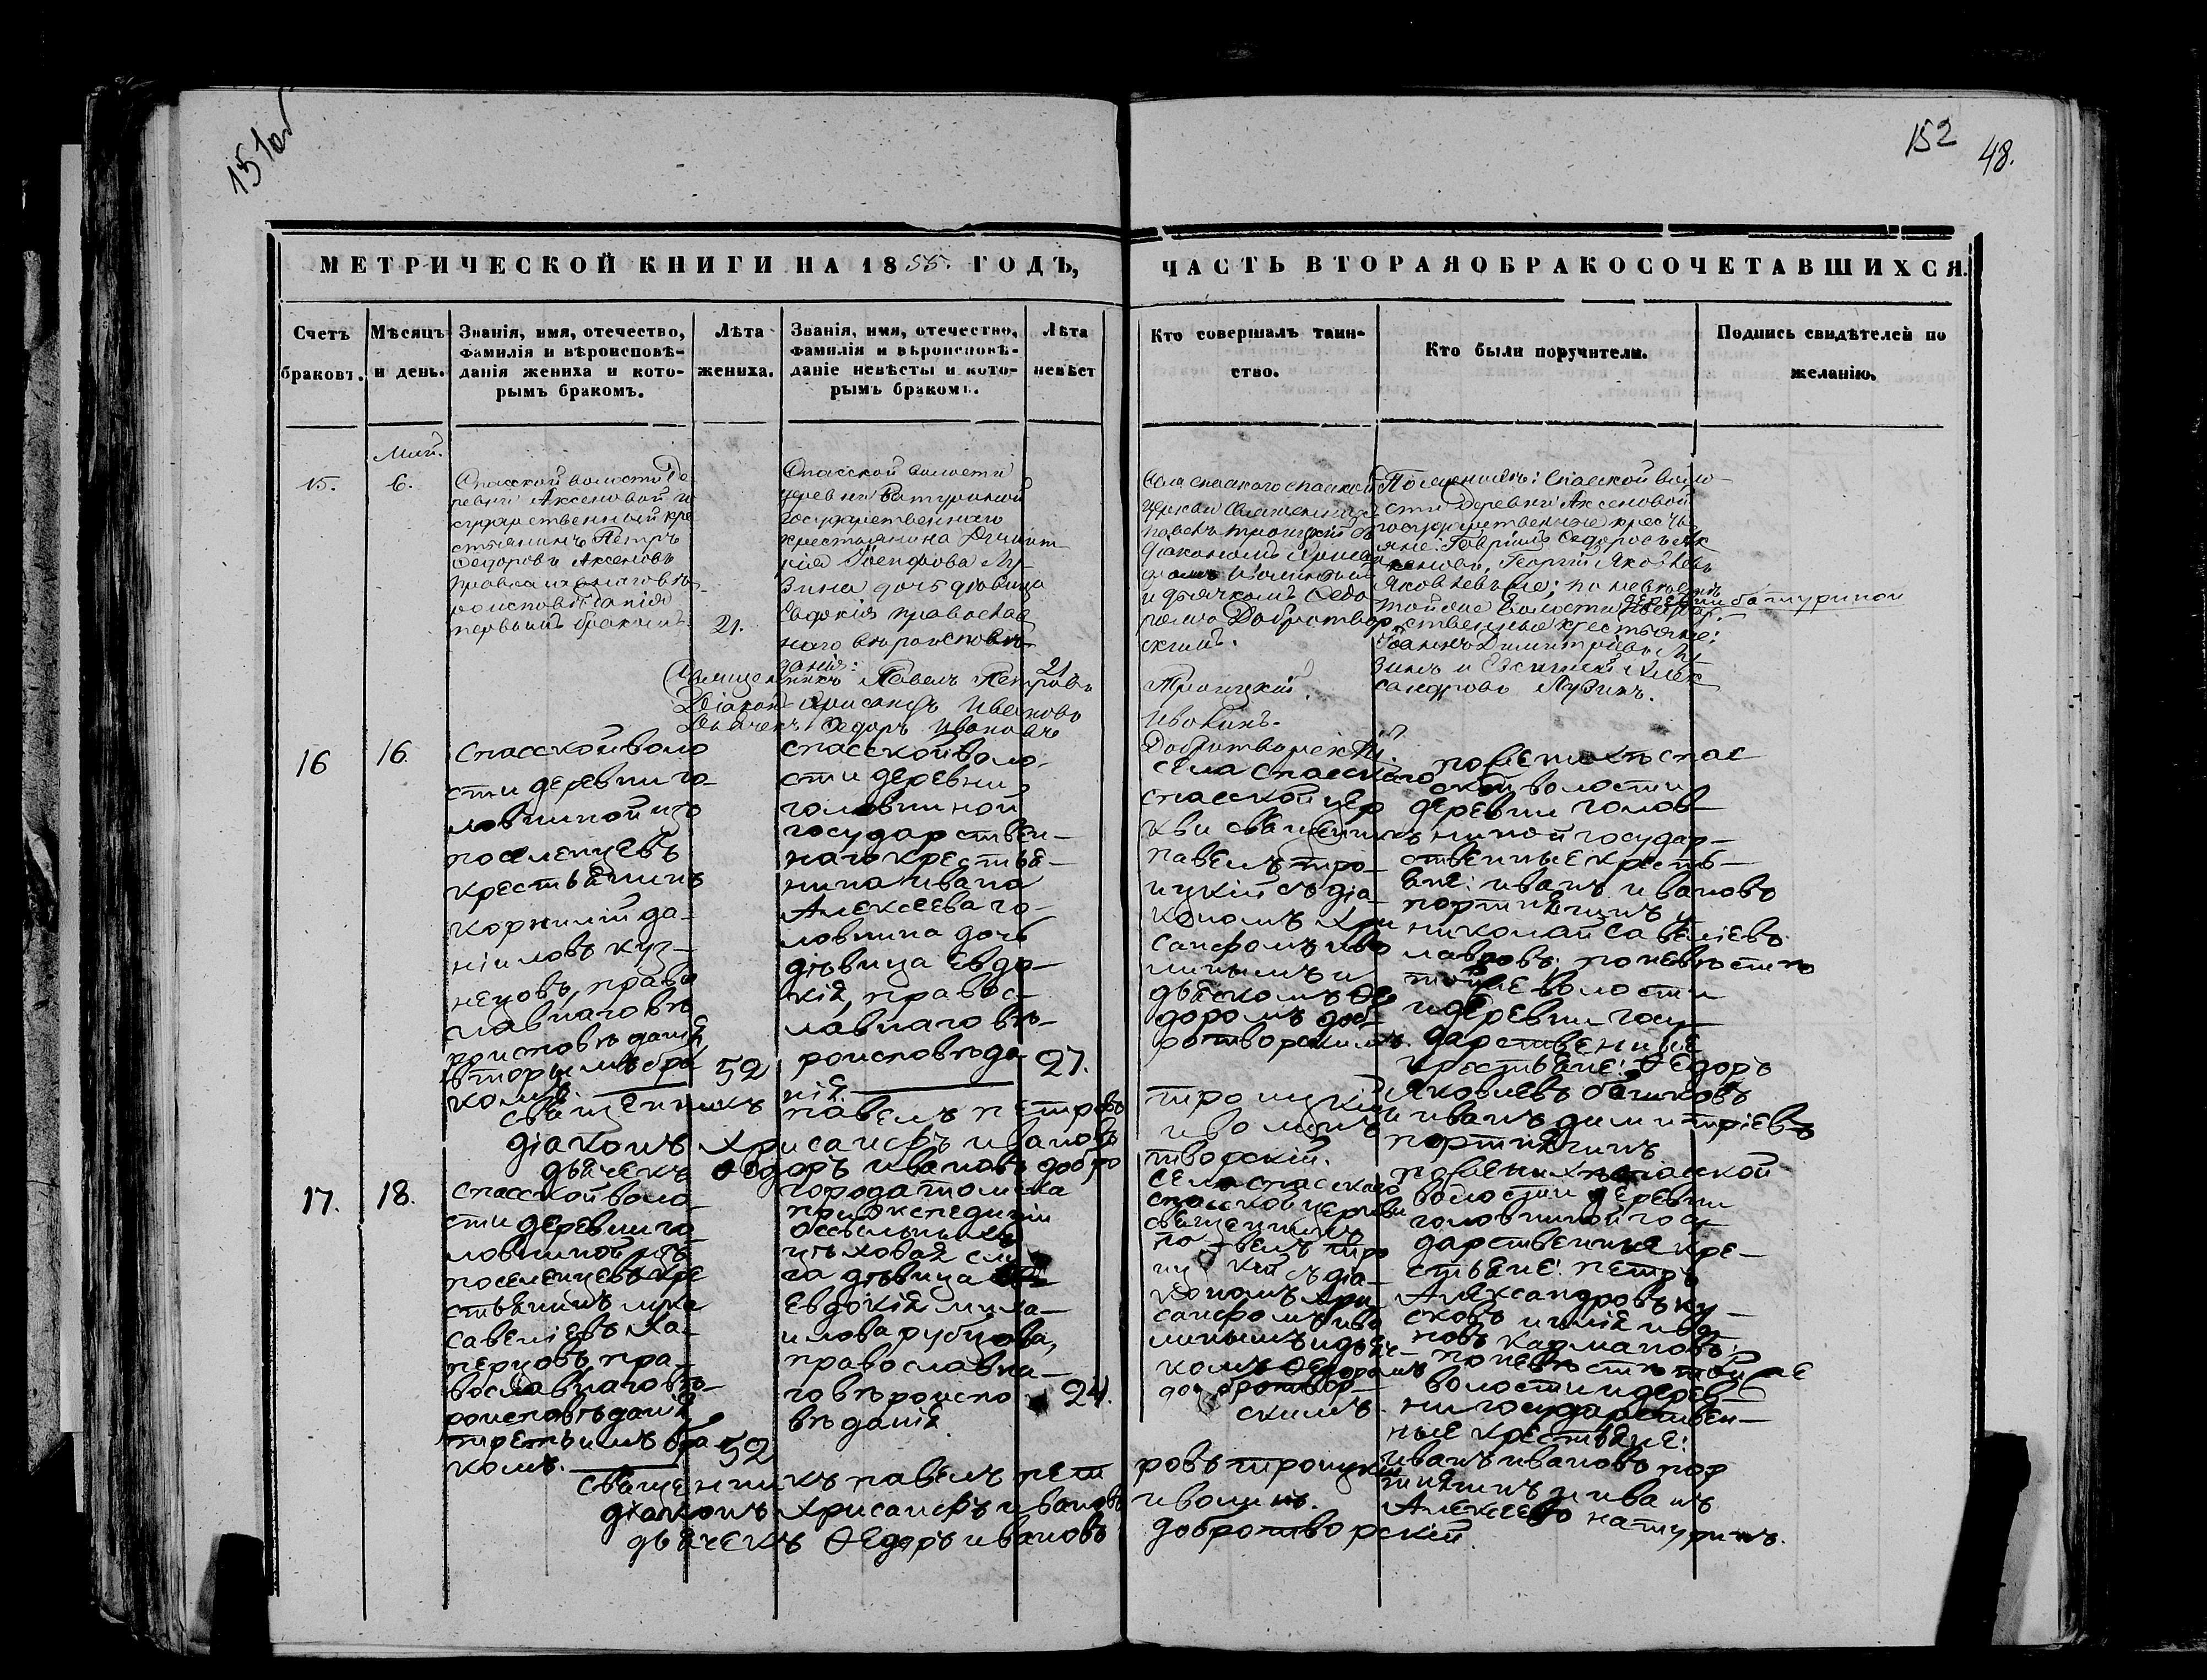 151об
152
48.
МЕТРИЧЕСКОЙ КНИГИ НА 1855. ГОДЪ,
ЧАСТЬ ВТОРАЯ О БРАКОСОЧЕТАВШИХСЯ.
Счетъ
браковъ.
Мѣсяцъ
и день.
Званія, имя, отечество,
фамилія и вѣроисповѣ-
данія жениха и кото-
рымъ бракомъ.
Лѣта
жениха.
Званія, имя, отечество,
фамилія и вѣроисповѣ-
даніе невѣсты и кото-
рымъ бракомъ.
Лѣта
невѣст
Кто совершалъ таин-
ство.
Кто были поручители.
Подпись свидѣтелей по
желанію.
Май.
15.
6.
Спасской волости де
ревни Аксеновой го
сударственный кре
стьянинъ Петръ
Ѳедоровъ Аксеновъ
православнаго вѣ-
роисповѣданія
первымъ бракомъ.
21.
Спасской волости
деревни Батуриной
государственнаго
крестьянина Димит
рія Лу-
зина дочь дѣвица
Евдокія православ
наго вѣроисповѣ-
данія:
21
Села спасскаго спасской
церкви священникъ
павелъ троицкій съ
діакономъ Хрисан
фомъ Иволинымъ
и дьячкомъ Ѳедо
ромъ Добротвор
скимъ.
По женихѣ: Спасской воло-
сти деревни Аксеновой
государственные кресть
яне: Гавріилъ Ѳедоровъ Ак
сеновъ, Георгій Яковлевъ
по невѣстѣ
той же волости деревни батуриной
государ-
ственные крестьяне:
Іоаннъ Димитріевъ Лу-
зинъ и Алек
сандровъ Лузинъ.
Священникъ Павелъ Петровъ
Троицкій.
Діаконъ Хрисанфъ Ивановъ
Иволинъ.
Дьячекъ Ѳедоръ Ивановъ
Добротворскій.
16
16.
спасской воло
сти деревни го-
ловниной изъ
поселенцевъ
крестьянинъ
корнилій да-
ніиловъ куз-
нецовъ, право
славнаго вѣ
роисповѣданія
вторымъ бра
комъ.
52
спасской воло-
сти деревни
головниной
государствен-
наго крестья-
нина ивана
Алексеева го-
ловнина дочь
дѣвица Евдо-
кія, правос-
лавнаго вѣ-
роисповѣда
нія.
27.
села спасскаго
спасской цер
кви священникъ
павелъ тро-
ицкій съ діа-
кономъ хри
санфомъ иво
линымъ и
дьячкомъ Ѳе
доромъ доб-
ротворскимъ.
по женихѣ спас
ской волости
деревни голов-
ниной государ-
ственные кресть-
яне: иванъ ивановъ
портнягинъ и
николай савеліевъ
лавровъ: по невѣстѣ
той же волости
и деревни госу-
дарственные
крестьяне: Ѳедоръ
Яковлевъ
и иванъ димитріевъ
портнягинъ
священникъ павелъ петровъ
троицкій
діаконъ хрисанфъ ивановъ
иволинъ
дьячекъ Ѳедоръ ивановъ добро
творскій.
17.
18.
спасской воло-
сти деревни го-
ловниной изъ
поселенцевъ кре
стьянинъ лука
савеліевъ ха-
перцовъ, пра-
вославнаго вѣ-
роисповѣданія
третьимъ бра-
комъ.
52
города томска
при экспедиціи
о ссыльныхъ
цѣховая слу
га дѣвица
Евдокія миха-
илова рубцова,
православна-
го вѣроиспо
вѣданія.
24.
села спасскаго
спасской церкви
священникъ
павелъ тро
ицкій съ діа-
кономъ хри
санфомъ иво
линымъ и дьяч-
комъ Ѳедоромъ
добротвор-
скимъ.
по женихѣ спасской
волости деревни
головниной госу-
дарственные кре-
стьяне: петръ
Александровъ ку-
сковъ и илія ива-
новъ кармановъ:
по невѣстѣ той же
волости и дерев-
ни государствен-
ные крестьяне:
иванъ ивановъ пор
тнягинъ и иванъ
Алексеевъ батуринъ.
священникъ павелъ пет
ровъ троицкій
діаконъ хрисанфъ ивановъ
иволинъ.
дьячекъ Ѳедоръ ивановъ
добротворскій.